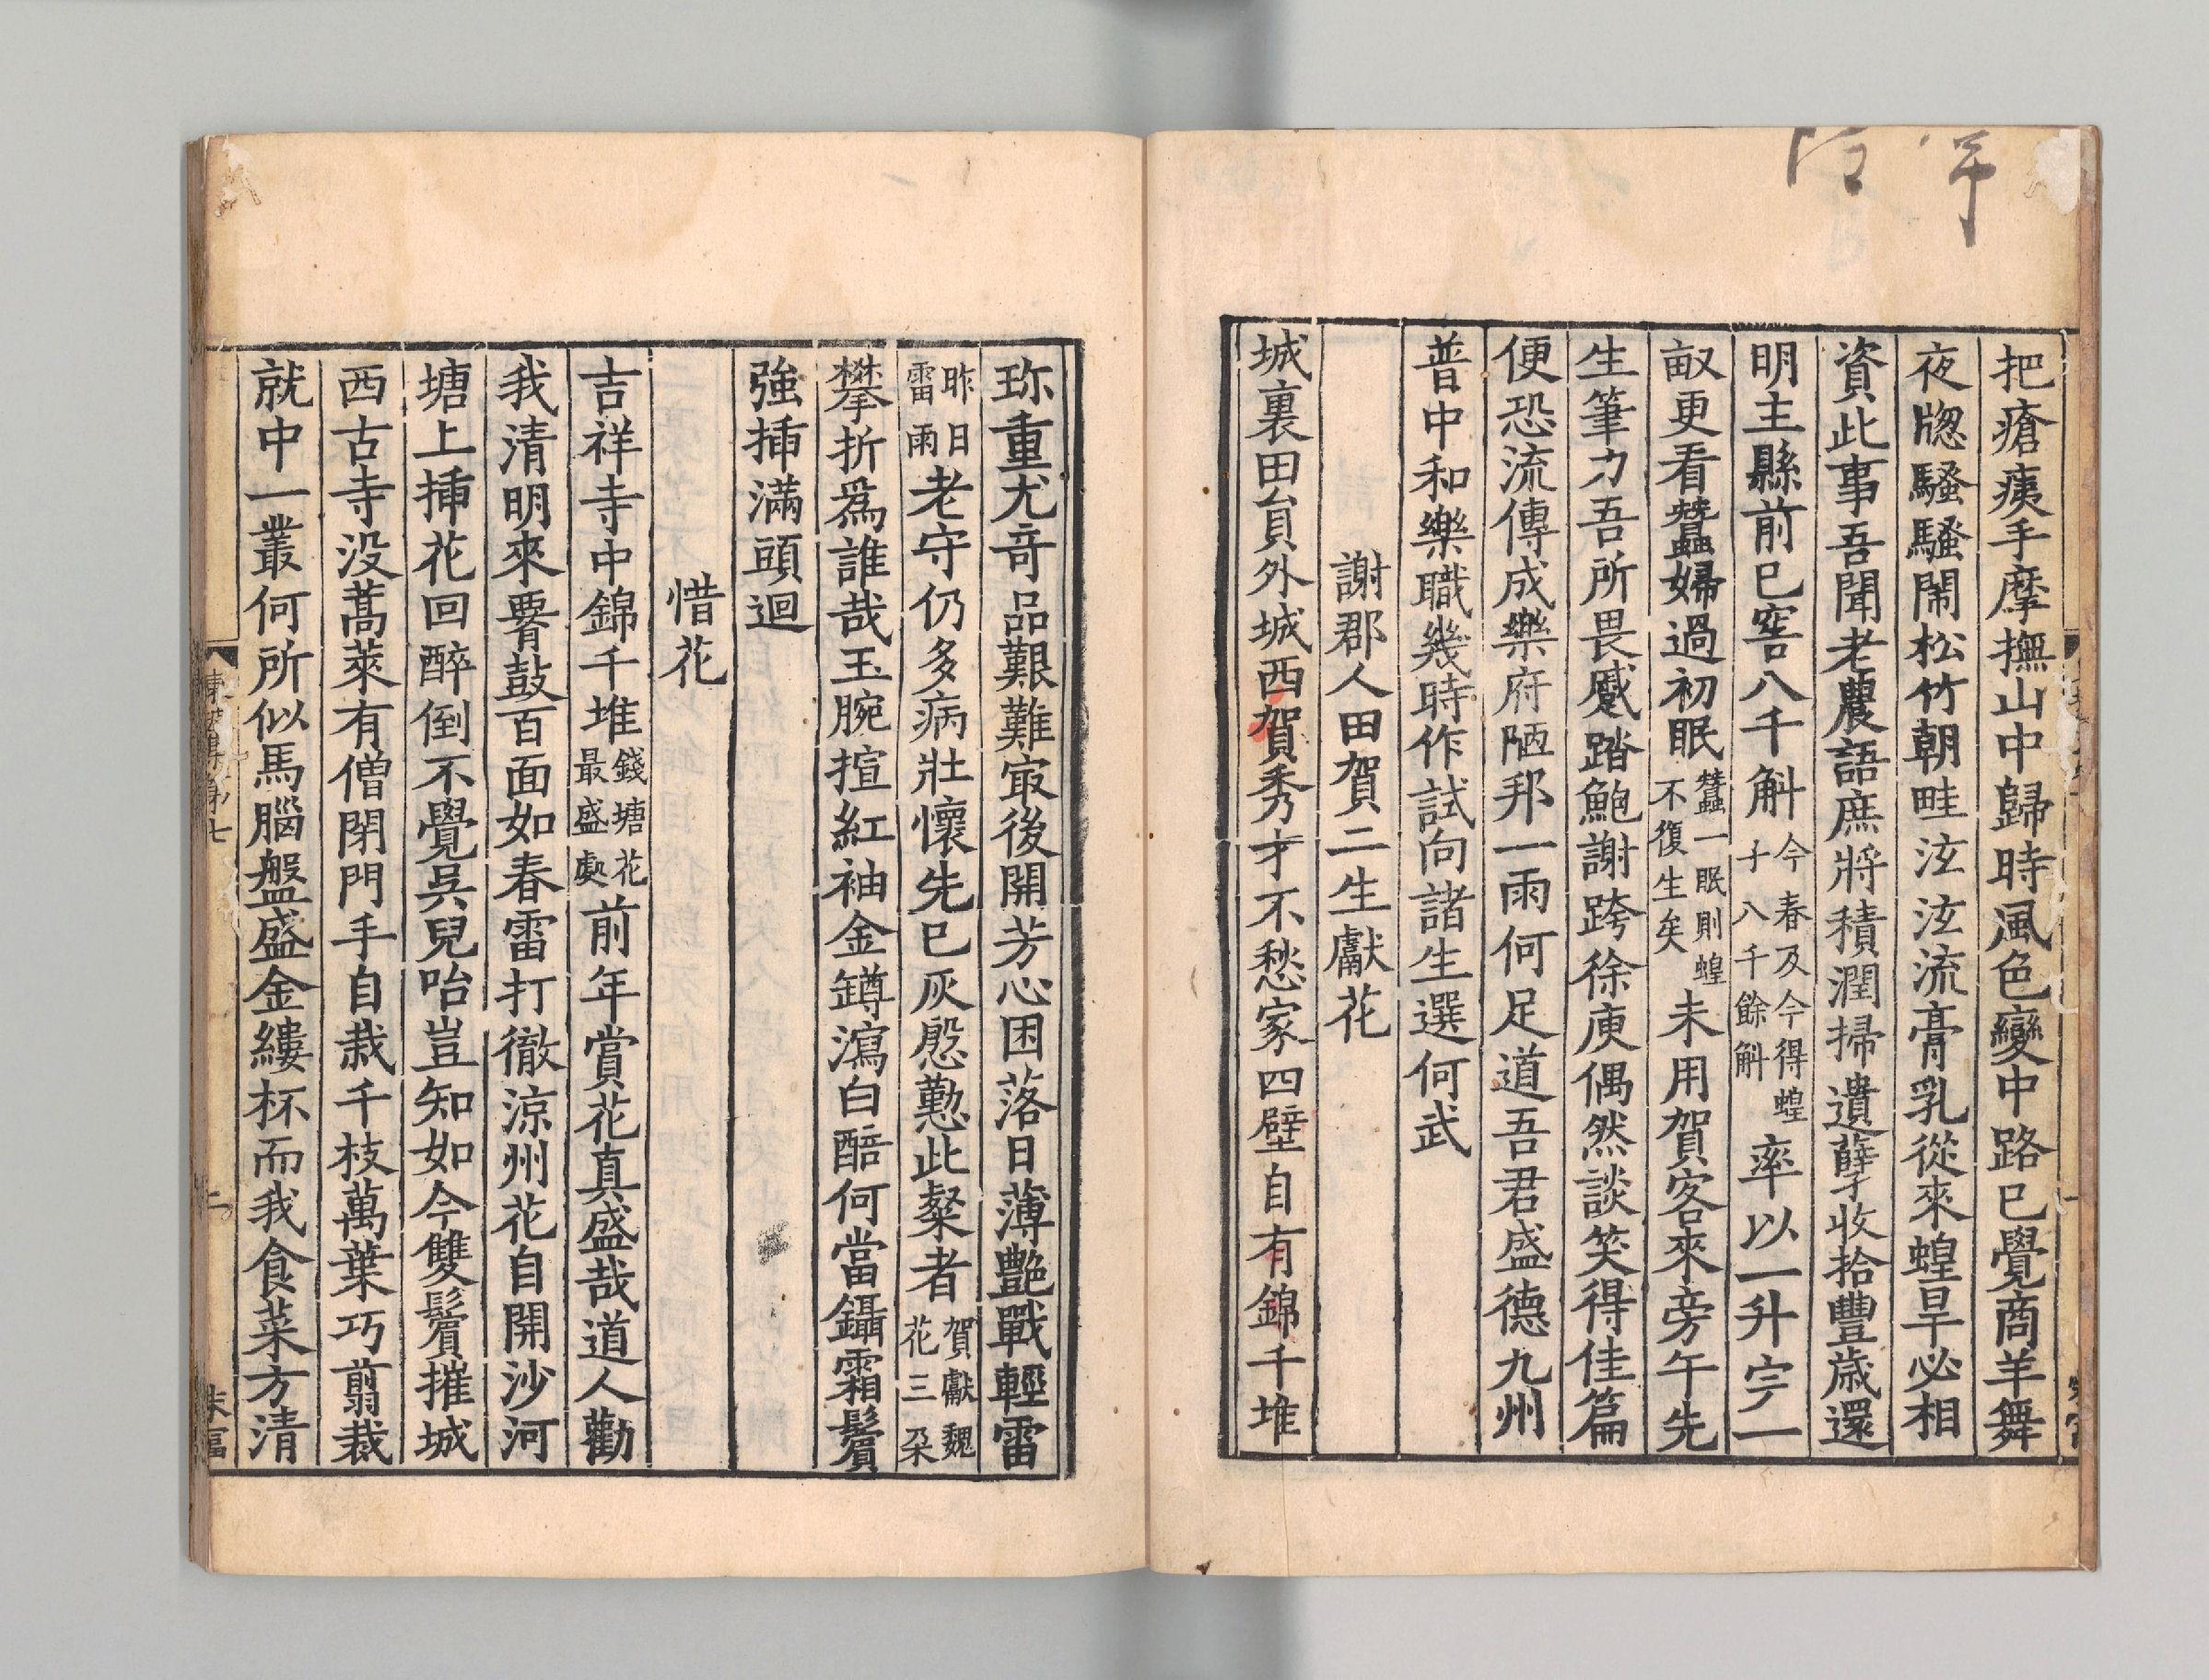 把瘡痍手摩撫山中歸時風色變中路已覺商羊舞
夜牎騷騷鬧松竹朝畦泫泫流膏乳從來蝗旱必相
資此事吾聞老農語庶將積潤掃遺孽收拾豐歳還
明主縣前已窖八千斛今春及今得蝗子八千餘斛率以一升完一
畝更看蠶婦過初眠蠶一眠則蝗不復生矣未用賀客來旁午先
生筆力吾所畏蹙踏鮑謝跨徐庾偶然談笑得佳篇
便恐流傳成樂府陋邦一雨何足道吾君盛德九州
普中和樂職幾時作試向諸生選何武
謝郡人田賀二生獻花
城裏田貟外城西賀秀才不愁家四壁自有錦千堆
珎重尤竒品艱難㝡後開芳心困落日薄艷戰輕雷
昨日雷雨老守仍多病壯懷先已灰慇懃此粲者賀獻魏花三朶
攀折爲誰哉玉腕揎紅袖金罇瀉白醅何當鑷霜鬢
強揷滿頭迴
惜花
吉祥寺中錦千堆錢塘花最盛處前年賞花真盛哉道人勸
我清明來腰鼓百面如春雷打徹涼州花自開沙河
塘上揷花回醉倒不覺吳兒咍豈知如今雙鬢摧城
西古寺没蒿萊有僧閉門手自栽千枝萬葉巧翦裁
就中一叢何所似馬腦盤盛金縷杯而我食菜方清
東坡集第七
二
朱富